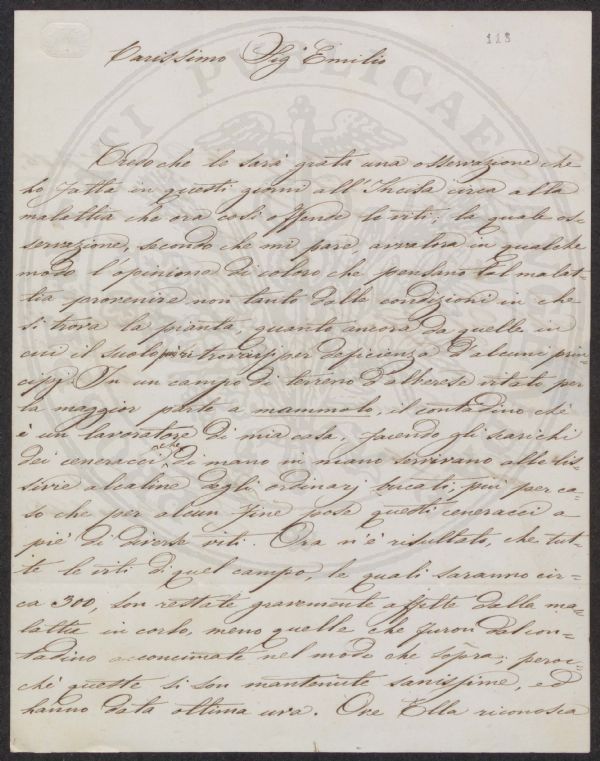 118
Carissimo Sig.r Emilio
Credo che le sarà grata una osservazione che
ho fatta in questi giorni all'Incisa circa alla
malattia che ora così offende le viti; la quale os=
servazione, secondo che mi pare avvalora in qualche
modo l'opinione di coloro che pensano tal malat=
tia provenire non tanto dalle condizioni in che
si trova la pianta, quanto ancora da quelle in
cui il suolo può ritrovarsi per deficienza d'alcuni prin=
cipj. In un campo di terreno d'alberese vitato per
la maggior parte a mammolo, il contadino che
è un lavoratore di mia casa, facendo gli scarichi
dei ceneracci che di mano in mano servivano alle lis=
sivie alcaline degli ordinarj bucati, più per ca=
so che per alcun fine pose questi ceneracci a
piè di diverse viti. Ora n'è risultato, che tut=
te le viti di quel campo, le quali saranno cir=
ca 300, son restate gravemente affette dalla ma=
lattia in corso, meno quelle che furon dal con=
tadino acconciate nel modo che sopra; peroc=
chè queste si son mantenute sanissime, ed
hanno data ottima uva. Ove Ella riconosca